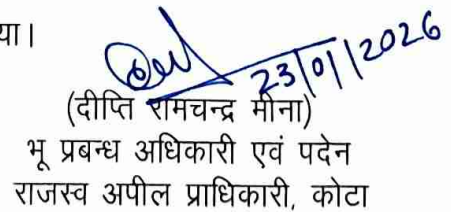 या।
23/01/2026
(दीप्ति रामचन्द्र मीना)
भू प्रबन्ध अधिकारी एवं पदेन
राजस्व अपील प्राधिकारी, कोटा